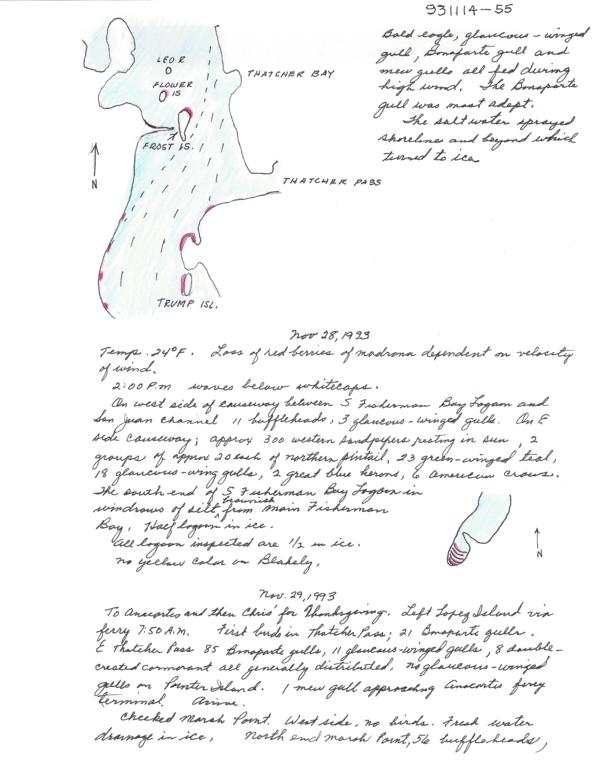 931114-55
Bald eagle, glaucous-winged
gull, Bonaparte gull and
mew gulls all fed during
high wind. The Bonaparte
gull was most adept.
The salt water sprayed
shoreline and beyond which
turned to ice.
LEO R
FLOWER
IS
THATCHER BAY
FROST IS.
N
THATCHER PASS
TRUMP ISL.
Nov 28, 1993
Temp. 24°F. Loss of red berries of madrona dependent on velocity
of wind.
2:00 P.m waves below whitecaps.
On west side of causeway between S Fisherman Bay Lagoon and
San Juan channel 11 buffleheads, 3 glaucous-winged gulls. On E
side causeway; approx 300 western sandpipers resting in sun, 2
groups of approx 20 each of northern pintail, 23 green-winged teal,
18 glaucous-wing gulls, 2 great blue herons, 6 American crows.
The south end of S Fisherman Bay Lagoon in
windrows of brownish silt from main Fisherman
Bay, Half lagoon in ice.
All lagoon inspected are 1/2 in ice.
no yellow color on Blakely.
N
Nov. 29, 1993
To Anacortes and then Chris' for Thanksgiving. Left Lopez Island via
ferry 7:50 A.M. First birds in Thatcher Pass; 21 Bonaparte gulls.
E Thatcher Pass 85 Bonaparte gulls, 11 glaucous-winged gulls, 8 double-
crested cormorant all generally distributed, no glaucous-winged
gulls on Pointer Island. 1 mew gull approaching Anacortes ferry
terminal.
Checked Marsh Point. West side, no birds. Fresh water
drainage in ice. North end marsh Point, 56 buffleheads,